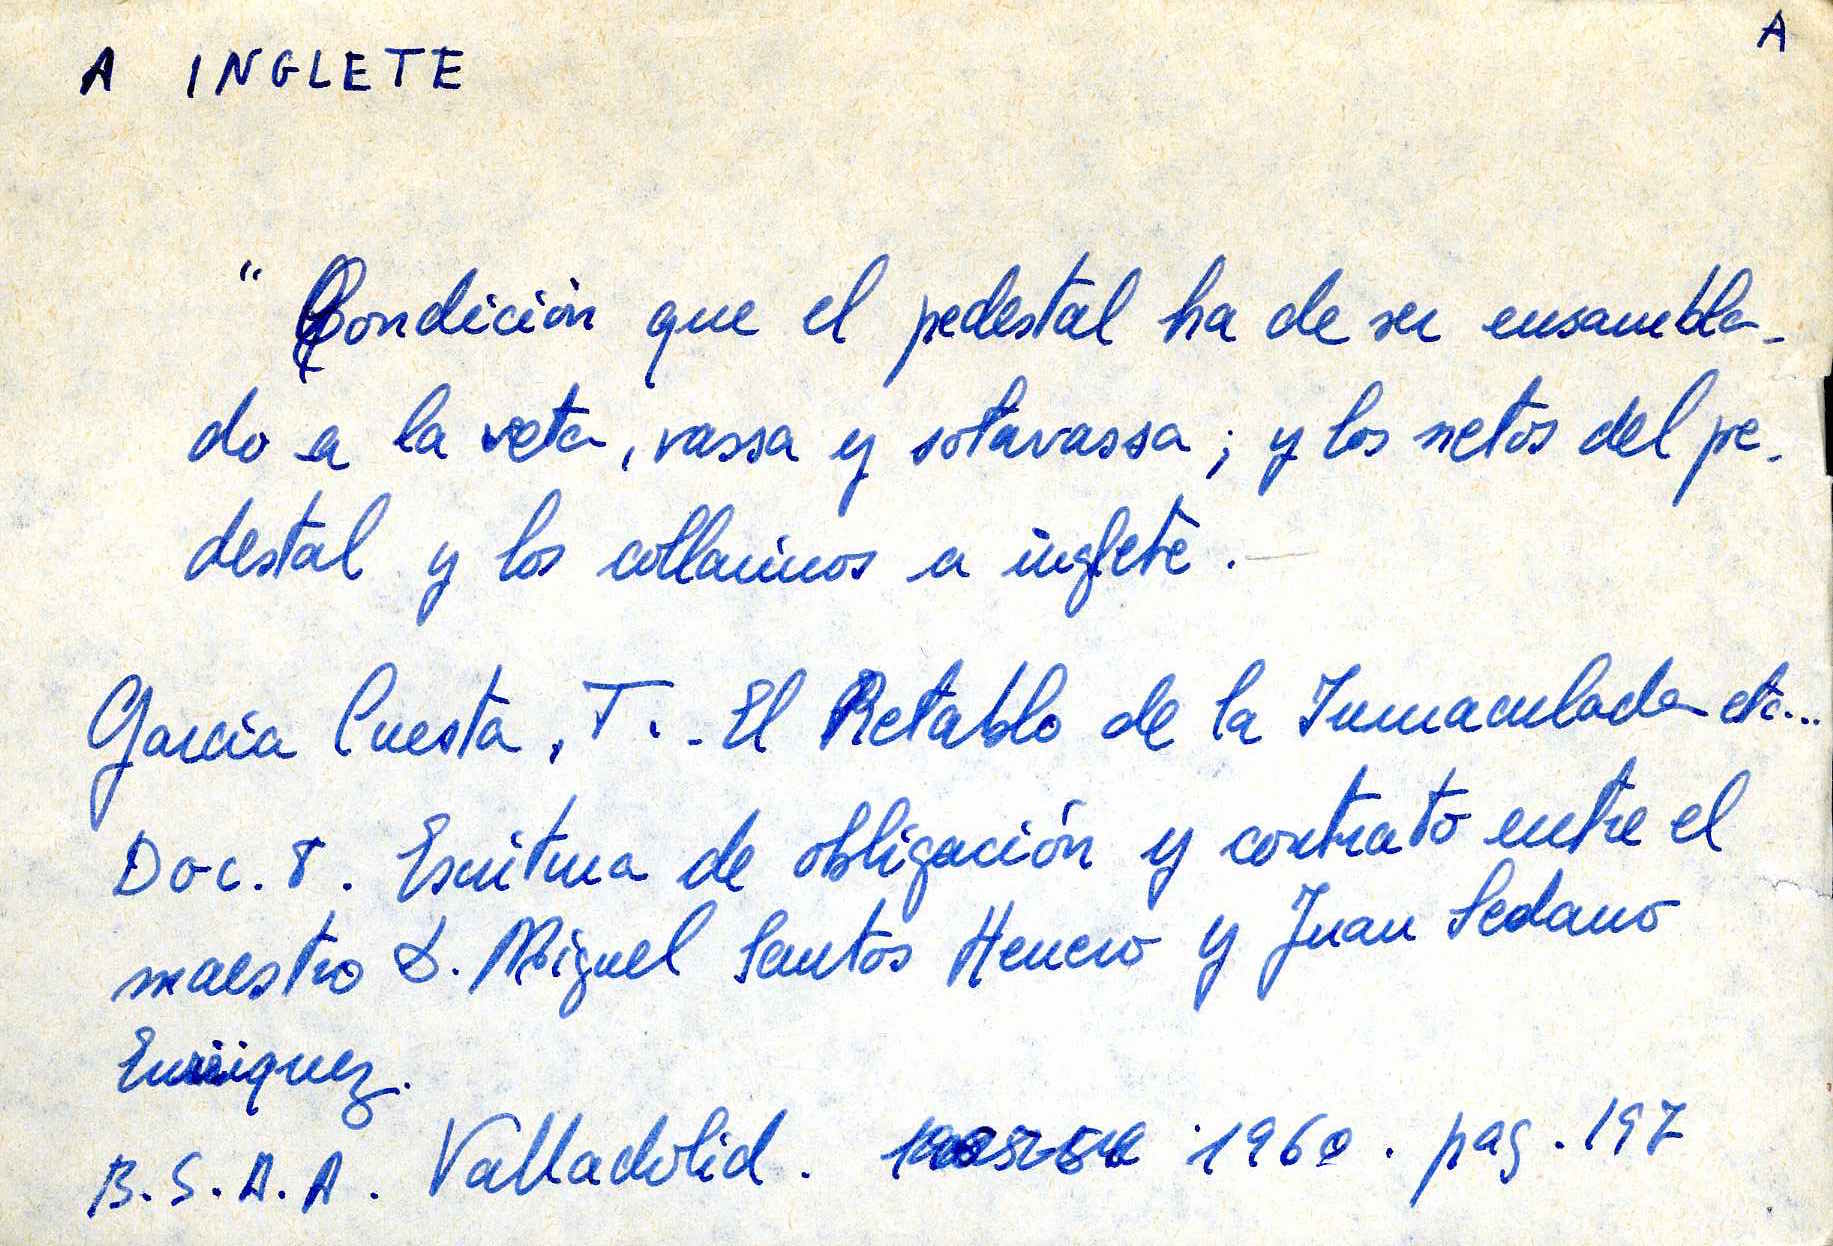 A
A INGLETE
" Condición que el pedestal ha de ser ensambla-
do a la veta, vassa y sotavassa; y los netos del pe-
destal y los collarinos a inglete.
García Cuesta, T. - El Retablo de la Inmaculada etc...
Doc. 8. Escritura de obligación y contrato entre el
maestro D. Miguel Santos Henero y Juan Sedano
Enríquez.
B.S.A.A. Valladolid. 1960. pag. 197